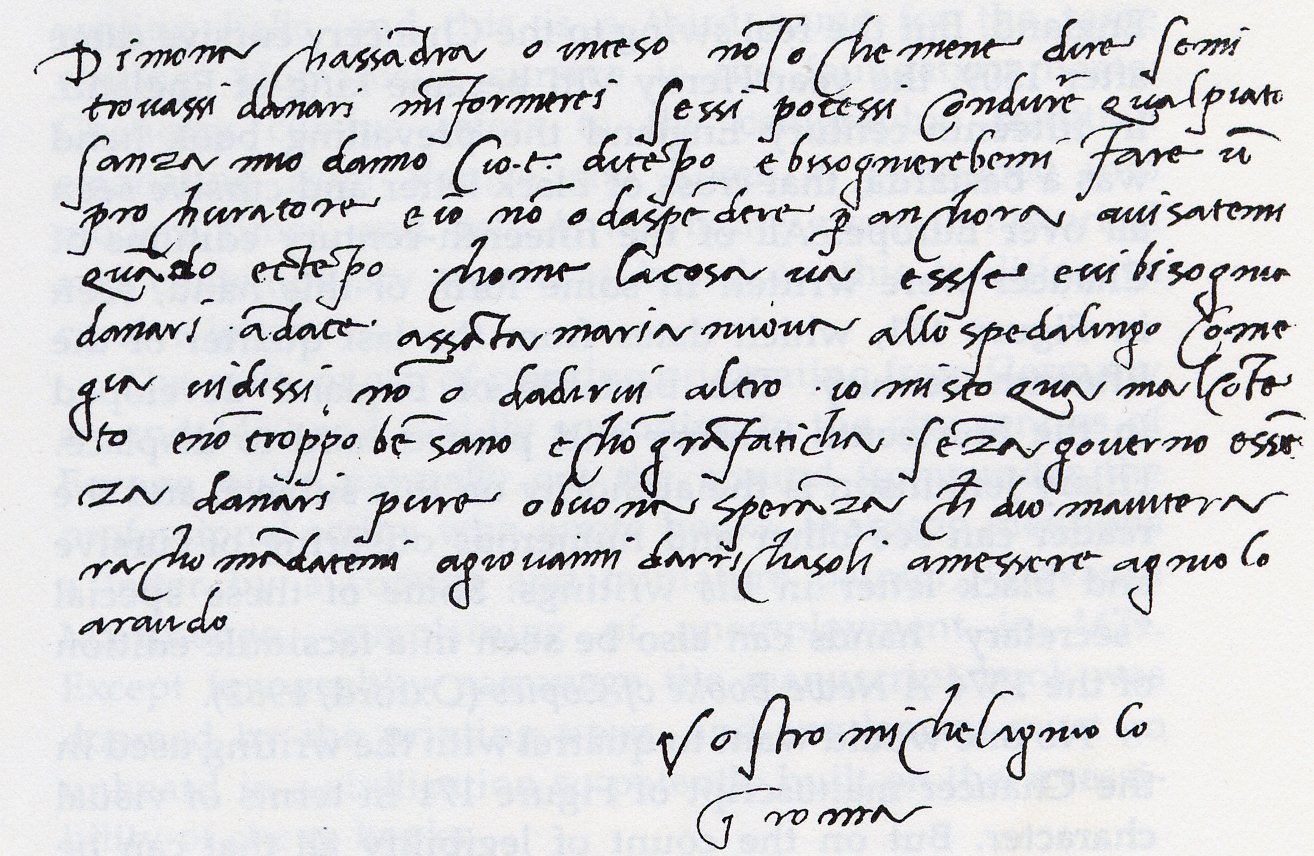 Di mona chassādra o inteso nō so che mene dire semi
trovassi danari m'īformerei sessi potessi chondurre qua l piato
sanza mio danno cioè di tēpo e bisognierebemi fare ū
prochuratore e io nō o da spēdere p anchora avisatemi
quādo e ctēpo chome la cosa va essse e vi bisognia
danari ādate a ssāta maria nuova allo spedalingo come
gia vi dissi nō o da dirvi altro io mi sto qua mal chōtē
to e nō troppo bē sano e chō grā faticha sēza governo e ssē
za danari pure o buona sperāza ch dio m aiutera
rachomādatemi a giovanni da rrichasoli a messere agniolo
araudo
Vostro michelagniolo
ī roma